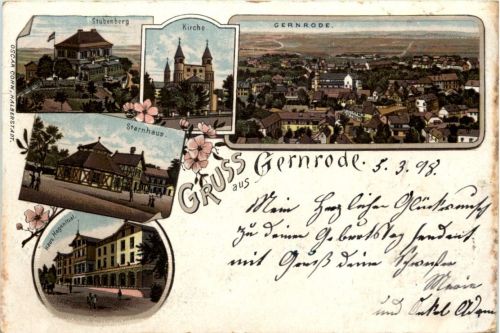 Stubenberg
Kirche
GERNRODE.
OSCAR COHN, HALBERSTADT.
Sternhaus.
Haus Hagenthal.
GRUSS
aus
Gernrode. 5.3.98.
Mein Herzlichen Glückwunsch
zu deinem Geburtstag sendet
mit Gruß deine Schwester
Marie
und Onkel Adam